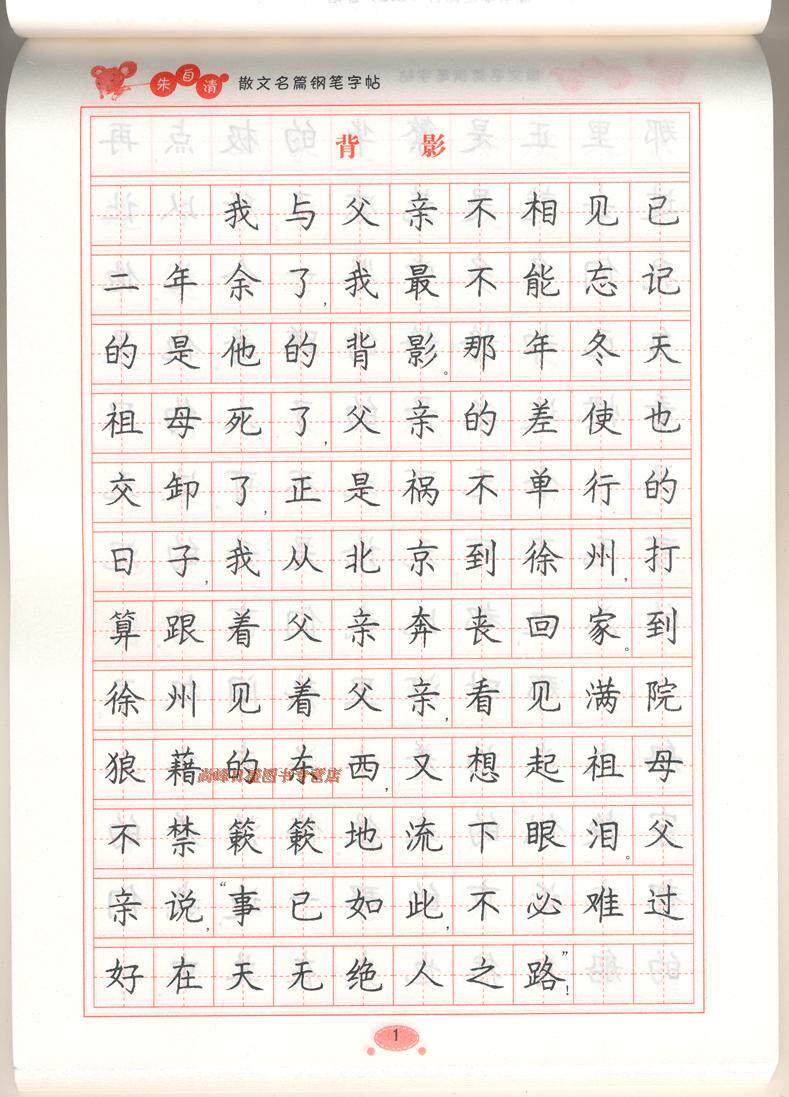 朱自清 散文名篇钢笔字帖
背影
我与父亲不相见已
二年余了,我最不能忘记
的是他的背影。那年冬天
祖母死了,父亲的差使也
交卸了,正是祸不单行的
日子,我从北京到徐州,打
算跟着父亲奔丧回家。到
徐州见着父亲,看见满院
狼藉的东西,又想起祖母
不禁簌簌地流下眼泪。父
亲说,“事已如此,不必难过
好在天无绝人之路”!
1